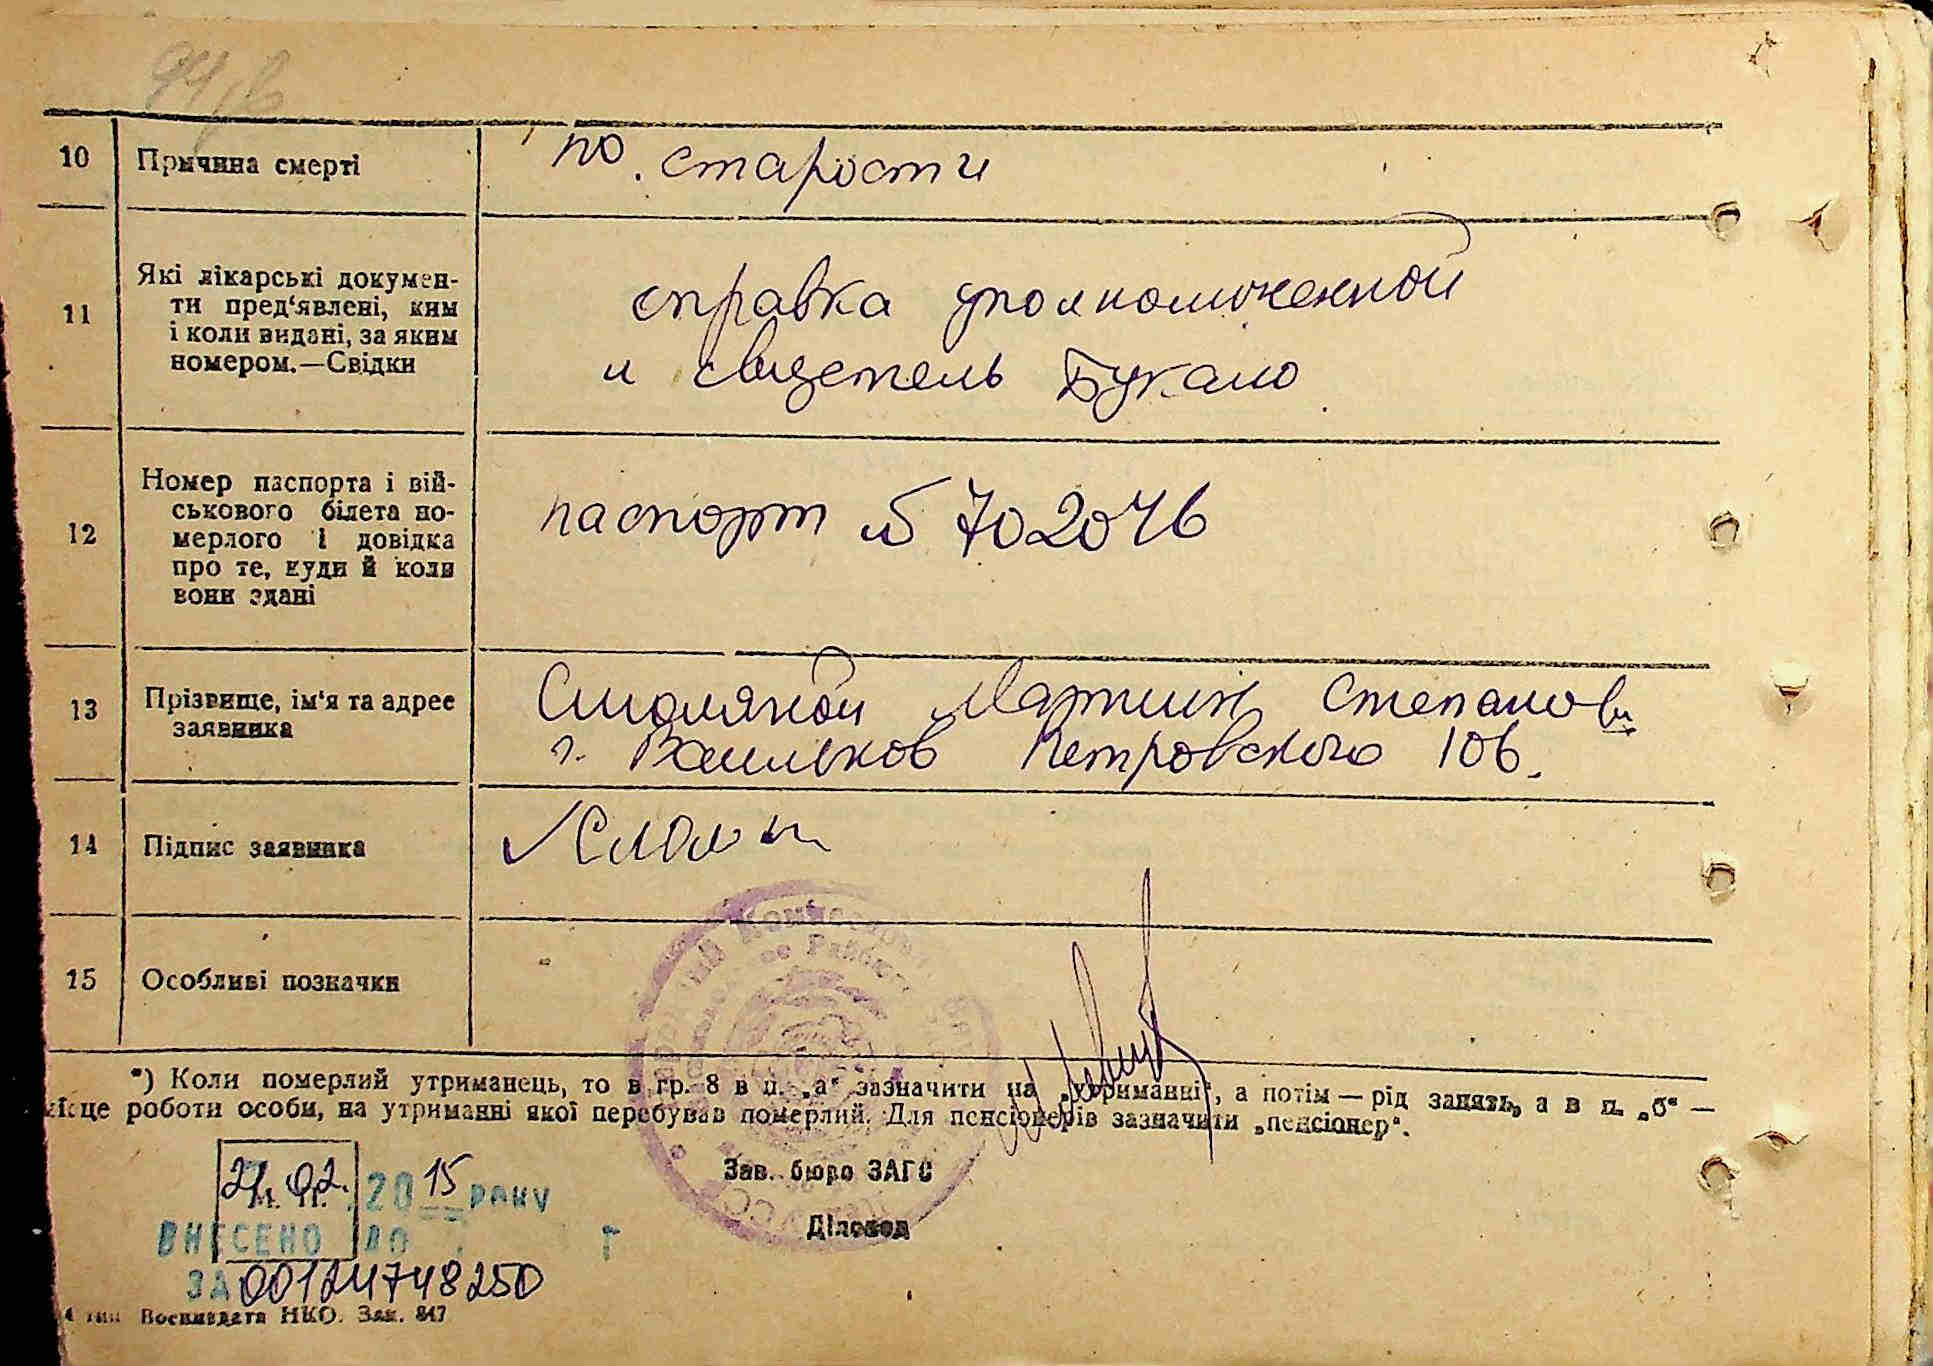 10 Причина смерті по старости
11 Які лікарські докумен-
ти пред'явлені, ким
і коли видані, за яким
номером.—Свідки
справка уполномоченной
и свидетель Букало
12 Номер паспорта і вій-
ськового білета по-
мерлого і довідка
про те, куди й коли
вони здані
паспорт № 702046
13 Прізвище, ім'я та адрес
заявника
Смоляной Мартин Степанов
г. Васильков Петровского 106.
14 Підпис заявника
15 Особливі позначки
*) Коли померлий утриманець, то в гр. 8 в п. „а“ зазначити на „утриманні“, а потім — рід занять, а в п. „б“ —
місце роботи особи, на утриманні якої перебував померлий. Для пенсіонерів зазначити „пенсіонер“.
Зав. бюро ЗАГС
Діловод
27.02. 2015 року
ВНЕСЕНО ДО Г
ЗА 00124748250
4 тип Воениздата НКО. Зак. 847